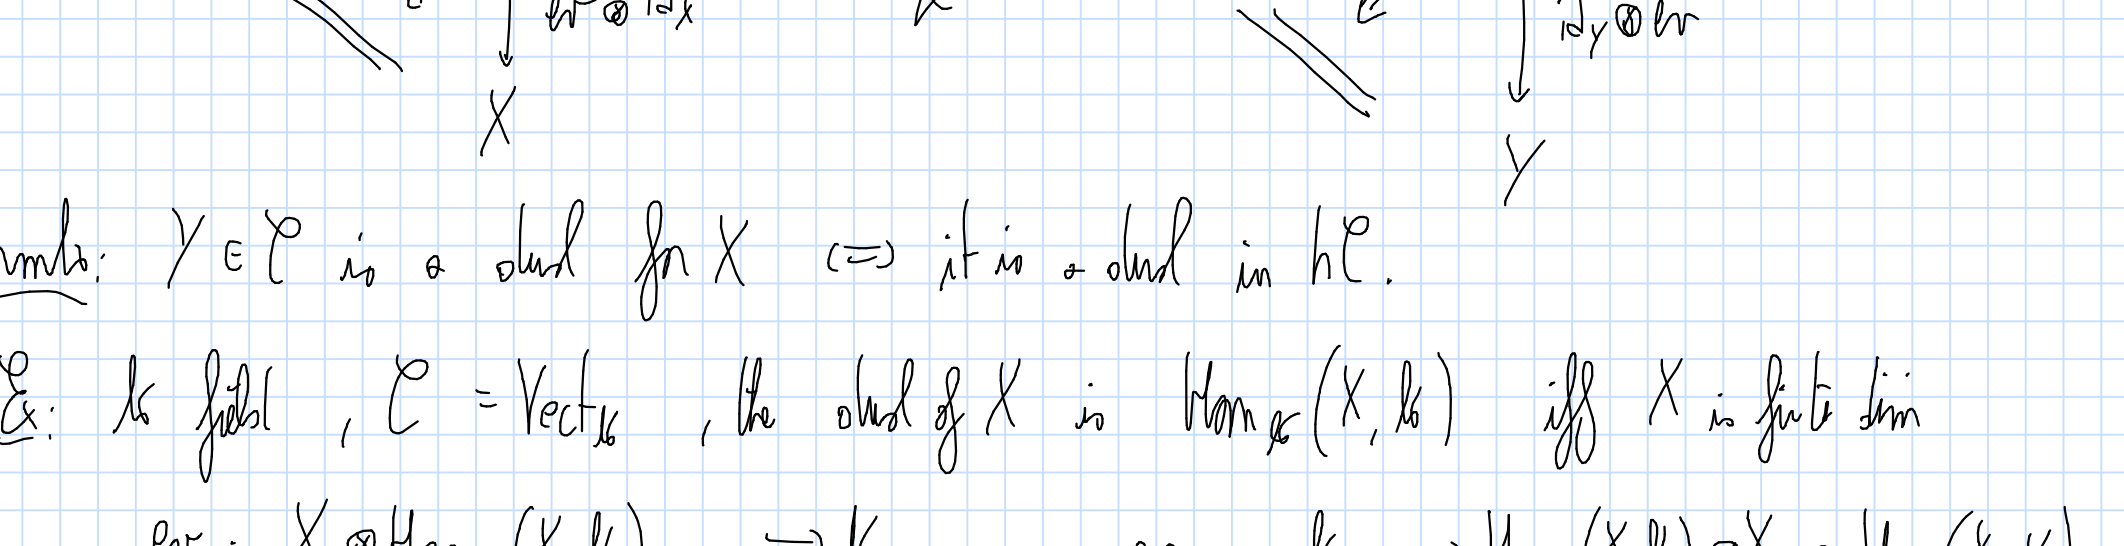 ev ⊗ id_X id_Y ⊗ ev
X
Y
Y ∈ C is a dual for X (=) it is a dual in hC.
Ex: k field, C = Vect_k, the dual of X is Hom_k(X, k) iff X is finite dim